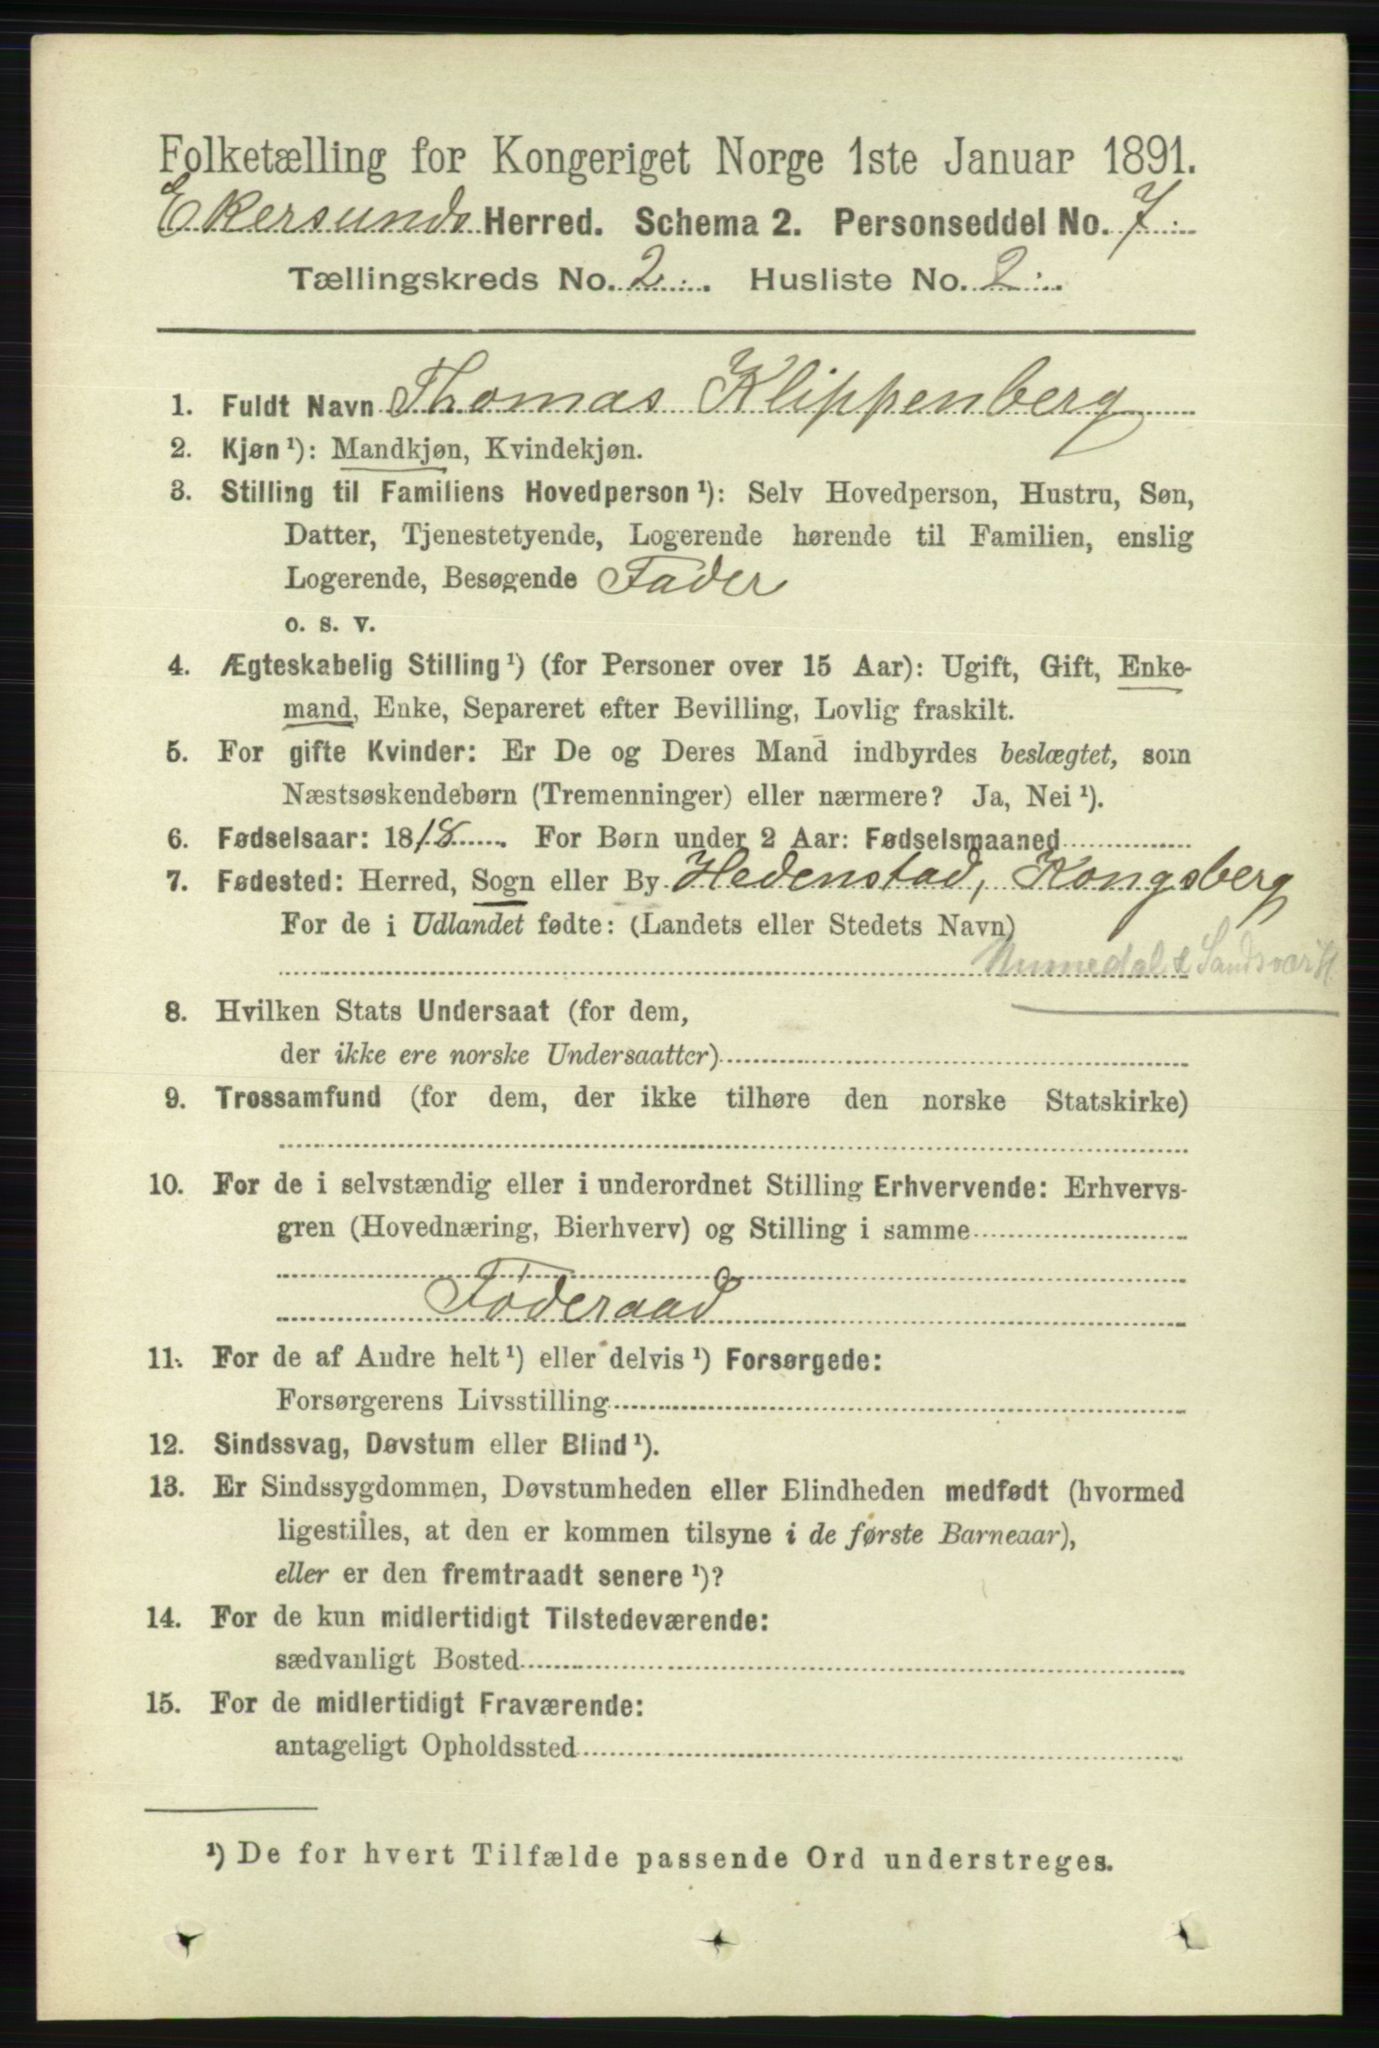 Folketælling for Kongeriget Norge 1ste Januar 1891.
Ekersunds Herred. Schema 2. Personseddel No. 7.
Tællingskreds No. 2. Husliste No. 2.
1. Fuldt Navn Thomas Klippenberg
2. Kjøn ¹): Mandkjøn, Kvindekjøn.
3. Stilling til Familiens Hovedperson ¹): Selv Hovedperson, Hustru, Søn,
Datter, Tjenestetyende, Logerende hørende til Familien, enslig
Logerende, Besøgende Fader
o. s. v.
4. Ægteskabelig Stilling ¹) (for Personer over 15 Aar): Ugift, Gift, Enke-
mand, Enke, Separeret efter Bevilling, Lovlig fraskilt.
5. For gifte Kvinder: Er De og Deres Mand indbyrdes beslægtet, som
Næstsøskendebørn (Tremenninger) eller nærmere? Ja, Nei ¹).
6. Fødselsaar: 1818. For Børn under 2 Aar: Fødselsmaaned
7. Fødested: Herred, Sogn eller By Hedenstad, Kongsberg
For de i Udlandet fødte: (Landets eller Stedets Navn)
Numedal & Sandsvær
8. Hvilken Stats Undersaat (for dem,
der ikke ere norske Undersaatter)
9. Trossamfund (for dem, der ikke tilhøre den norske Statskirke)
10. For de i selvstændig eller i underordnet Stilling Erhvervende: Erhvervs-
gren (Hovednæring, Bierhverv) og Stilling i samme
Føderaad
11. For de af Andre helt ¹) eller delvis ¹) Forsørgede:
Forsørgerens Livsstilling
12. Sindssvag, Døvstum eller Blind ¹).
13. Er Sindssygdommen, Døvstumheden eller Blindheden medfødt (hvormed
ligestilles, at den er kommen tilsyne i de første Barneaar),
eller er den fremtraadt senere ¹)?
14. For de kun midlertidigt Tilstedeværende:
sædvanligt Bosted
15. For de midlertidigt Fraværende:
antageligt Opholdssted
¹) De for hvert Tilfælde passende Ord understreges.